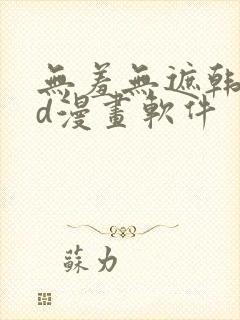 無羞無遮韩
d漫畫軟件
蘇力